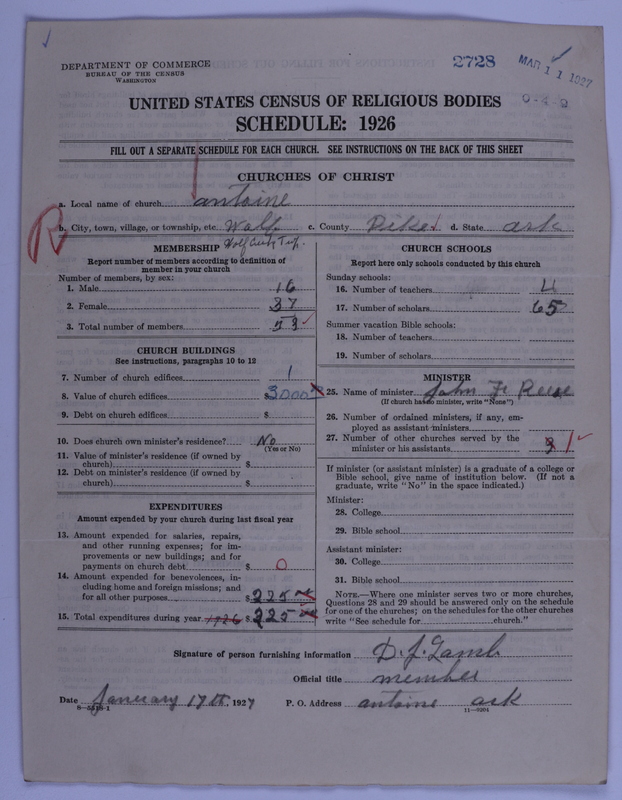 DEPARTMENT OF COMMERCE
BUREAU OF THE CENSUS
WASHINGTON
2728
MAR 11 1927
0-4-9
UNITED STATES CENSUS OF RELIGIOUS BODIES
SCHEDULE: 1926
FILL OUT A SEPARATE SCHEDULE FOR EACH CHURCH. SEE INSTRUCTIONS ON THE BACK OF THIS SHEET
CHURCHES OF CHRIST
a. Local name of church antoine
b. City, town, village, or township, etc. Wolf c. County Pike d. State ark
R
MEMBERSHIP
Report number of members according to definition of
member in your church
Number of members, by sex:
1. Male 16
2. Female 37
3. Total number of members 53
CHURCH BUILDINGS
See instructions, paragraphs 10 to 12
7. Number of church edifices 1
8. Value of church edifices $3000
9. Debt on church edifices $
10. Does church own minister's residence? No
(Yes or No)
11. Value of minister's residence (if owned by
church) $
12. Debt on minister's residence (if owned by
church) $
EXPENDITURES
Amount expended by your church during last fiscal year
13. Amount expended for salaries, repairs,
and other running expenses; for im-
provements or new buildings; and for
payments on church debt $ 0
14. Amount expended for benevolences, in-
cluding home and foreign missions; and
for all other purposes $225
15. Total expenditures during year 1926 $225
CHURCH SCHOOLS
Report here only schools conducted by this church
Sunday schools:
16. Number of teachers 4
17. Number of scholars 65
Summer vacation Bible schools:
18. Number of teachers
19. Number of scholars
MINISTER
25. Name of minister John F. Reese
(If church has no minister, write "None")
26. Number of ordained ministers, if any, em-
ployed as assistant ministers
27. Number of other churches served by the
minister or his assistants 1
If minister (or assistant minister) is a graduate of a college or
Bible school, give name of institution below. (If not a
graduate, write "No" in the space indicated.)
Minister:
28. College
29. Bible school
Assistant minister:
30. College
31. Bible school
NOTE.—Where one minister serves two or more churches,
Questions 28 and 29 should be answered only on the schedule
for one of the churches; on the schedules for the other churches
write "See schedule for church."
Signature of person furnishing information D. J. Lamb
Official title member
Date January 17th, 1927 P. O. Address antoine ark
11—9204